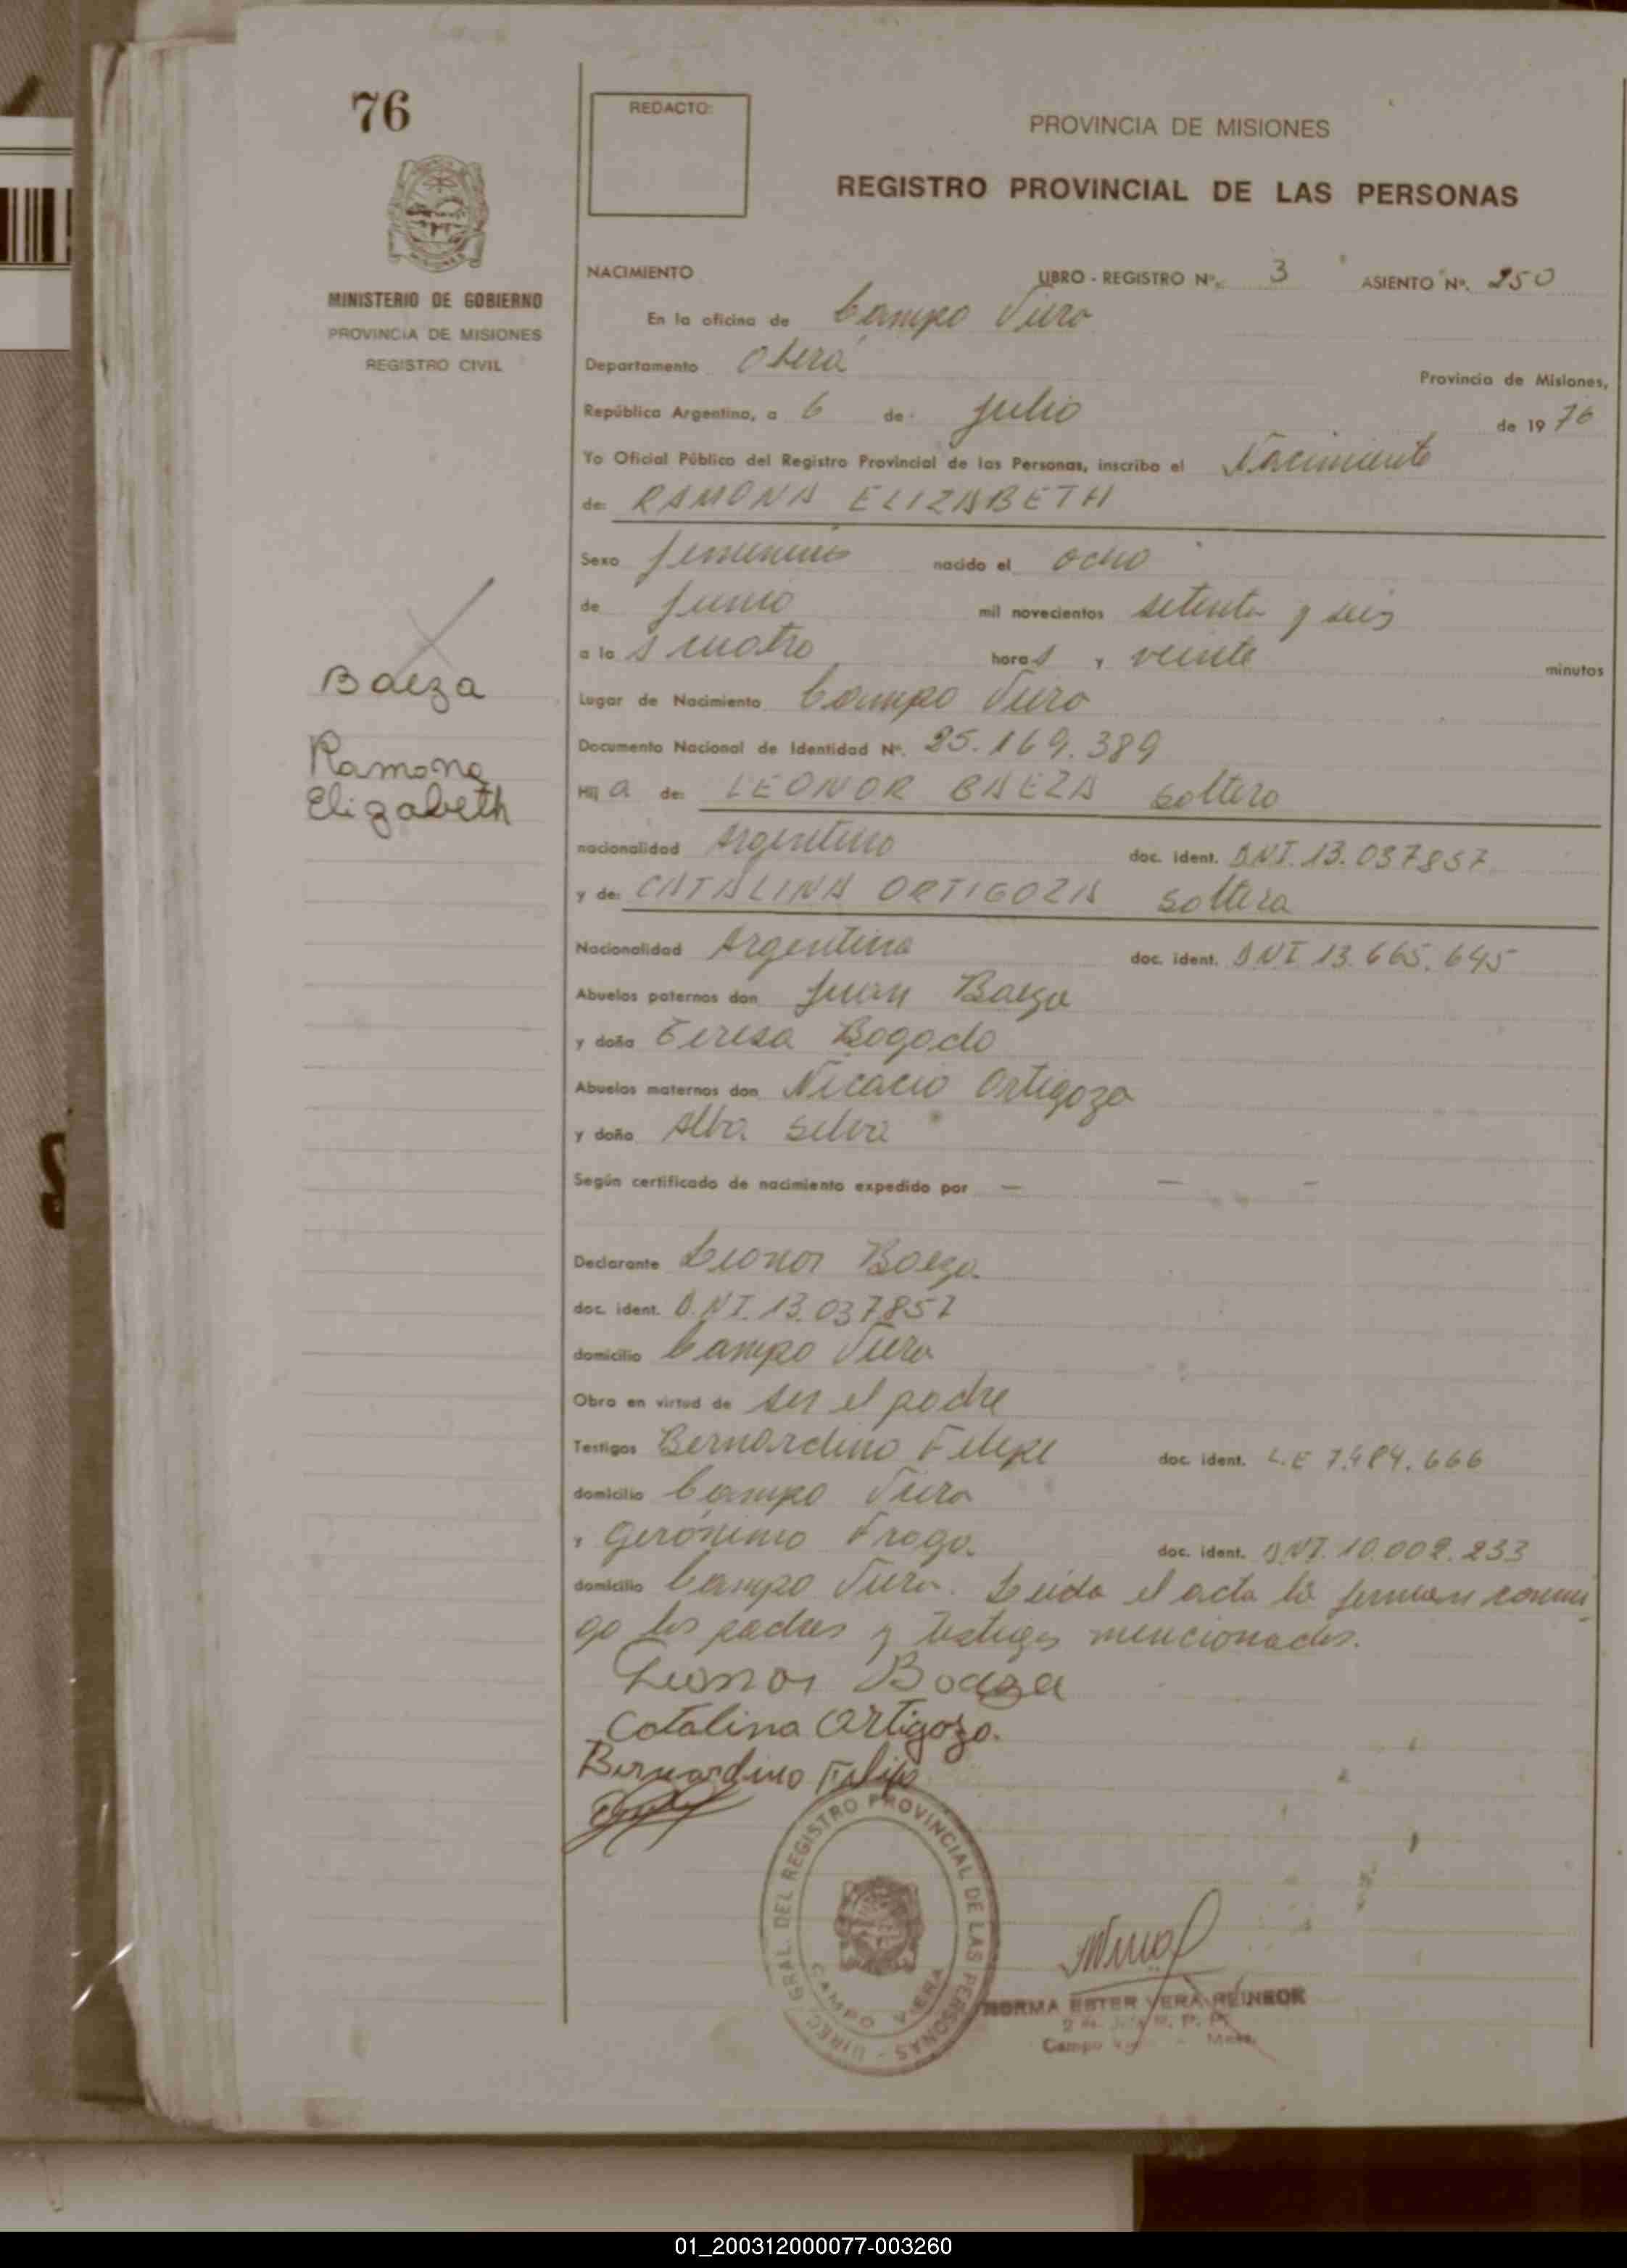 76
REDACTO:
PROVINCIA DE MISIONES
REGISTRO PROVINCIAL DE LAS PERSONAS
MINISTERIO DE GOBIERNO
PROVINCIA DE MISIONES
REGISTRO CIVIL
NACIMIENTO LIBRO - REGISTRO Nº. 3 ASIENTO Nº. 250
En la oficina de Campo Viera
Departamento Oberá Provincia de Misiones,
República Argentina, a 6 de julio de 1976
Yo Oficial Público del Registro Provincial de las Personas, inscribo el Nacimiento
de: RAMONA ELIZABETH
Sexo femenino nacido el ocho
de junio mil novecientos setenta y seis
a las cuatro horas y veinte minutos
Baeza
Lugar de Nacimiento Campo Viera
Ramona
Documento Nacional de Identidad Nº. 25.169.389
Elizabeth
Hija de: LEONOR BAEZA soltero
nacionalidad Argentino doc. ident. DNI. 13.037857
y de: CATALINA ORTIGOZA soltera
Nacionalidad Argentina doc. ident. DNI 13.665.645
Abuelos paternos don Juan Baeza
y doña Teresa Bogado
Abuelos maternos don Nicacio Ortigoza
y doña Alba Silva
Según certificado de nacimiento expedido por — — —
Declarante Leonor Baeza
doc. ident. D.N.I. 13.037857
domicilio Campo Viera
Obra en virtud de ser el padre
Testigos Bernardino Felipe doc. ident. L.E 7.484.666
domicilio Campo Viera
y Gerónimo Fraga doc. ident. DNI. 10.002.233
domicilio Campo Viera. Leída el acta la firman conmi
go los padres y testigos mencionados.
Leonor Baeza
Catalina Ortigoza.
Bernardino Felipe
DIREC. GRAL. DEL REGISTRO PROVINCIAL DE LAS PERSONAS
CAMPO VIERA
NORMA ESTER VERA REINECK
Campo
01_200312000077-003260